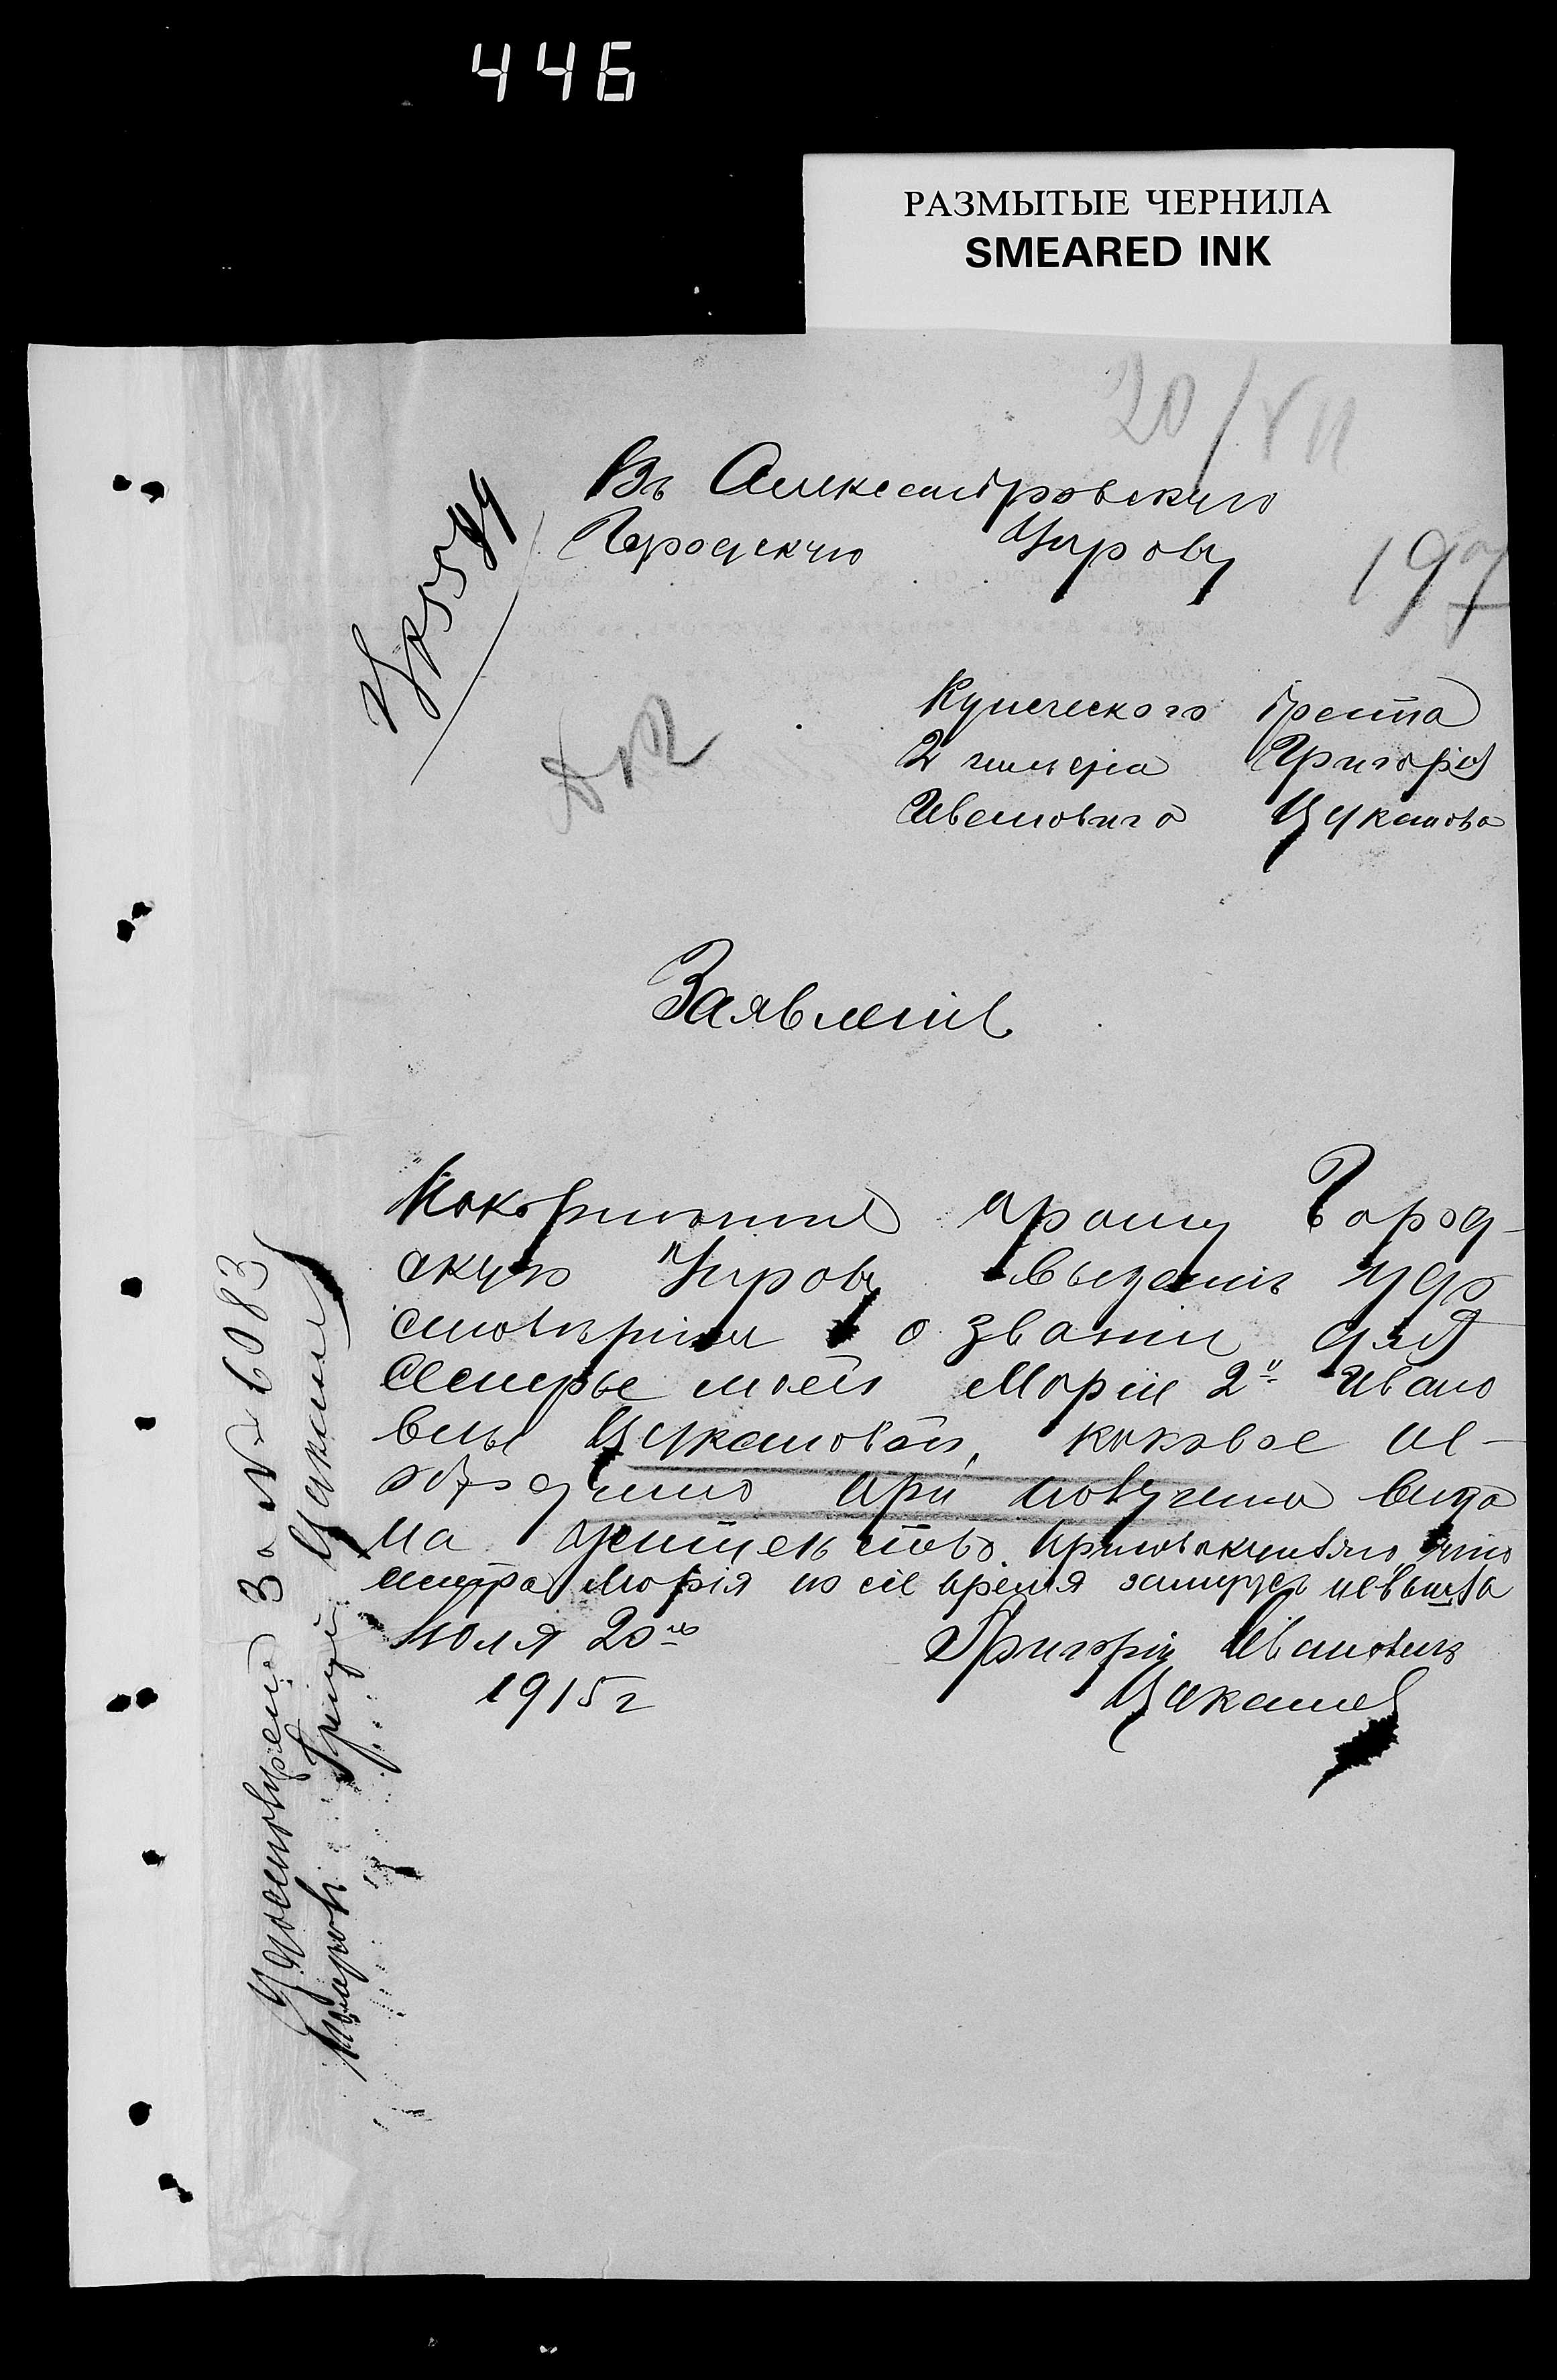 446
РАЗМЫТЫЕ ЧЕРНИЛА
SMEARED INK
20/VII
Въ Александровскую
Городскую Управу
197
Купеческого брата
2 гильдіи Григорія
Ивановича Цуканова
Заявленіе
Покорнейше прошу Город-
скую Управу выдать удо
стовѣреніе о званіи для
Сестры моей Маріи 2й Ивано
вны Цукановой, каковое не-
обходимо при полученіи вида
на жительство. Присовокупляю что
сестра Марія по сіе время замужъ невышла
Июля 20го
1915 г
Григорій Ивановичъ
Цукановъ
Удостовѣреніе За № 6083
Получилъ Григорій Цукановъ